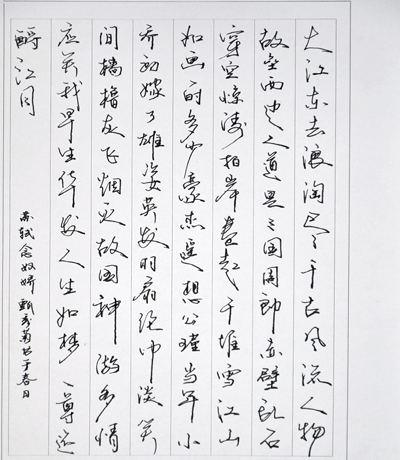 大江东去浪淘尽千古风流人物
故垒西边人道是三国周郎赤壁乱石
穿空惊涛拍岸卷起千堆雪江山
如画一时多少豪杰遥想公瑾当年小
乔初嫁了雄姿英发羽扇纶巾谈笑
间樯橹灰飞烟灭故国神游多情
应笑我早生华发人生如梦一尊还
酹江月
苏轼念奴娇 甄秀菊书于春日